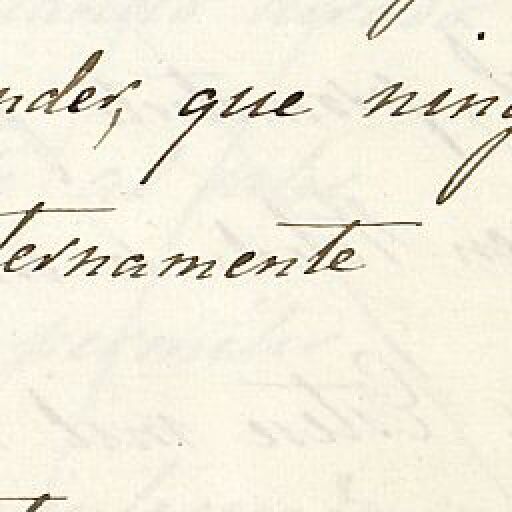 nder, que ning
ternamente